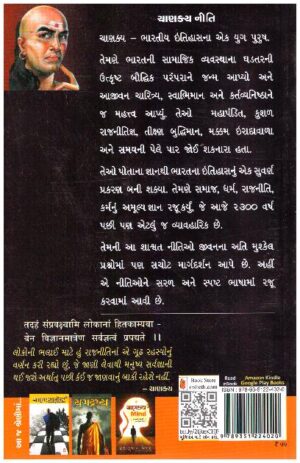 ચાણક્ય નીતિ
ચાણક્ય – ભારતીય ઇતિહાસના એક યુગ પુરુષ.
તેમણે ભારતની સામાજિક વ્યવસ્થાના ઘડતરની
ઉત્કૃષ્ટ બૌદ્ધિક પરંપરાને જન્મ આપ્યો અને
આજીવન ચારિત્ર્ય, સ્વાભિમાન અને કર્તવ્યનિષ્ઠાને
જ મહત્ત્વ આપ્યું. તેઓ મહાપંડિત, કુશળ
રાજનીતિજ્ઞ, તીક્ષ્ણ બુદ્ધિમાન, મક્કમ ઇરાદાવાળા
અને સમયની પેલે પાર જોઈ શકનારા હતા.
તેઓ પોતાના જ્ઞાનથી ભારતના ઇતિહાસનું એક સુવર્ણ
પ્રકરણ બની શક્યા. તેમણે સમાજ, ધર્મ, રાજનીતિ,
કર્મનું અમૂલ્ય જ્ઞાન રજૂ કર્યું, જે આજે ૨૩૦૦ વર્ષ
પછી પણ એટલું જ વ્યાવહારિક છે.
તેમની આ શાશ્વત નીતિઓ જીવનના અતિ મુશ્કેલ
પ્રશ્નોમાં પણ સચોટ માર્ગદર્શન આપે છે. અહીં
એ નીતિઓને સરળ અને સ્પષ્ટ ભાષામાં રજૂ
કરવામાં આવી છે.
તદહં સંપ્રવક્ષ્યામિ લોકાનાં હિતકામ્યયા –
યેન વિજ્ઞાનમાત્રેણ સર્વજ્ઞત્વં પ્રપદ્યતે ।।
લોકોની ભલાઈ માટે હું રાજનીતિનાં એ ગૂઢ રહસ્યોનું
વર્ણન કરી રહ્યો છું, જે જાણી લેવાથી મનુષ્ય સર્વજ્ઞાની
થઈ જશે અર્થાત્ પછી કંઈ જ જાણવાનું બાકી રહેશે નહીં.
– ચાણક્ય
આ જ શ્રેણીમાં...
ચાણક્ય
Mind
Read
ebook
Amazon Kindle
Google Play Books
9 789351 224020
₹